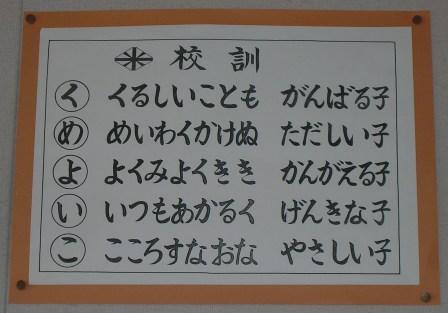 校訓
く くるしいことも がんばる子
め めいわくかけぬ ただしい子
よ よくみよくきき かんがえる子
い いつもあかるく げんきな子
こ こころすなおな やさしい子